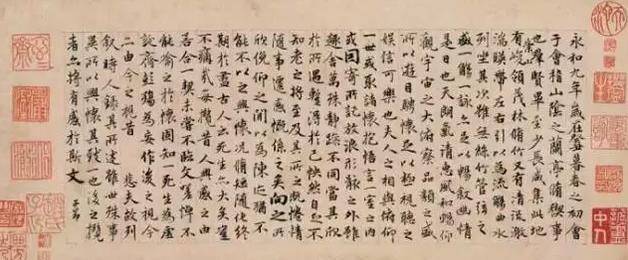 永和九年歲在癸丑暮春之初會
于會稽山陰之蘭亭脩禊事
也羣賢畢至少長咸集此地
有崇山峻領茂林脩竹又有清流激
湍暎帶左右引以為流觴曲水
列坐其次雖無絲竹管弦之
盛一觴一詠亦足以暢敘幽情
是日也天朗氣清惠風和暢仰
觀宇宙之大俯察品類之盛
所以遊目騁懷足以極視聽之
娛信可樂也夫人之相與俯仰
一世或取諸懷抱悟言一室之內
或因寄所託放浪形骸之外雖
趣舍萬殊靜躁不同當其欣
於所遇暫得於己怏然自足不
知老之將至及其所之既惓情
隨事遷感慨係之矣向之所
欣俛仰之間以為陳迹猶不
能不以之興懷況脩短隨化終
期於盡古人云死生亦大矣豈
不痛哉每攬昔人興感之由
若合一契未嘗不臨文嗟悼不
能喻之於懷固知一死生為虛
誕齊彭殤為妄作後之視今
亦由今之視昔 悲夫故列
敘時人錄其所述雖世殊事
異所以興懷其致一也後之攬
者亦將有感於斯文